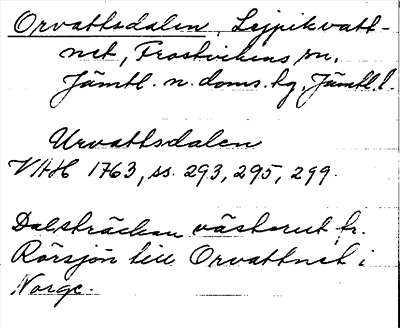 Orvattsdalen, Lejpikvatt-
net, Frostvikens sn,
Jämtl. n. doms. hg, Jämtl. l.
Urvattsdalen
VHH 1763, ss. 293, 295, 299.
Dalsträckan västerut fr.
Rörsjön till Orvattnet i
Norge.